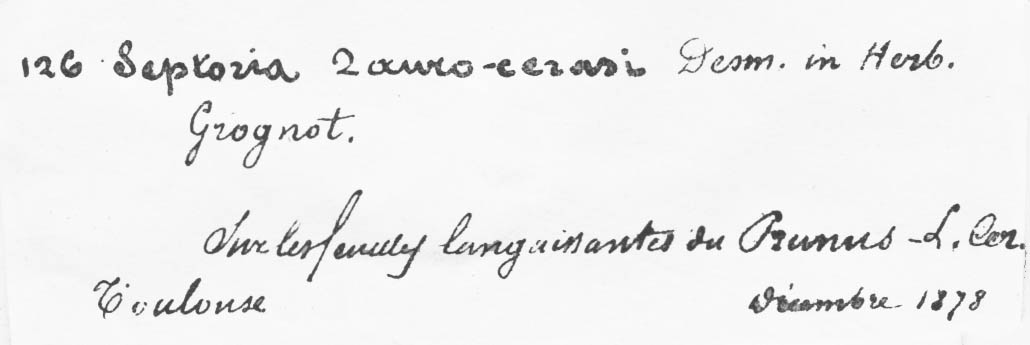 126 Septoria Lauro-cerasi Desm. in Herb.
Grognot.
Sur les feuilles languissantes du Prunus-L. Cer.
Toulouse Décembre 1878